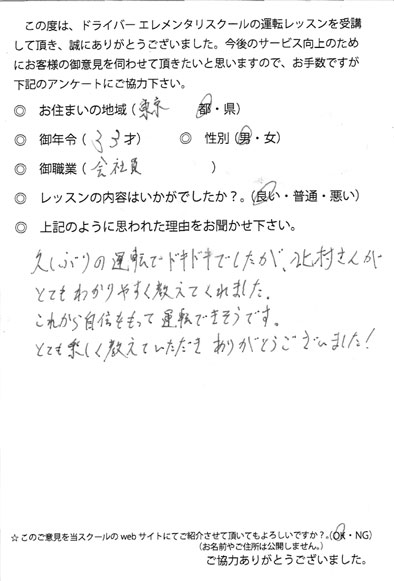 この度は、ドライバー エレメンタリスクールの運転レッスンを受講
して頂き、誠にありがとうございました。今後のサービス向上のため
にお客様の御意見を伺わせて頂きたいと思いますので、お手数ですが
下記のアンケートにご協力下さい。
◎ お住まいの地域（東京 都・県）
◎ 御年令（33才） ◎ 性別（男・女）
◎ 御職業（会社員 ）
◎ レッスンの内容はいかがでしたか？。（良い・普通・悪い）
◎ 上記のように思われた理由をお聞かせ下さい。
久しぶりの運転でドキドキでしたが、北村さんが
とてもわかりやすく教えてくれました。
これから自信をもって運転できそうです。
とても楽しく教えていただきありがとうございました!
☆このご意見を当スクールの web サイトにてご紹介させて頂いてもよろしいですか？。（OK・NG）
（お名前やご住所は公開しません。）
ご協力ありがとうございました。